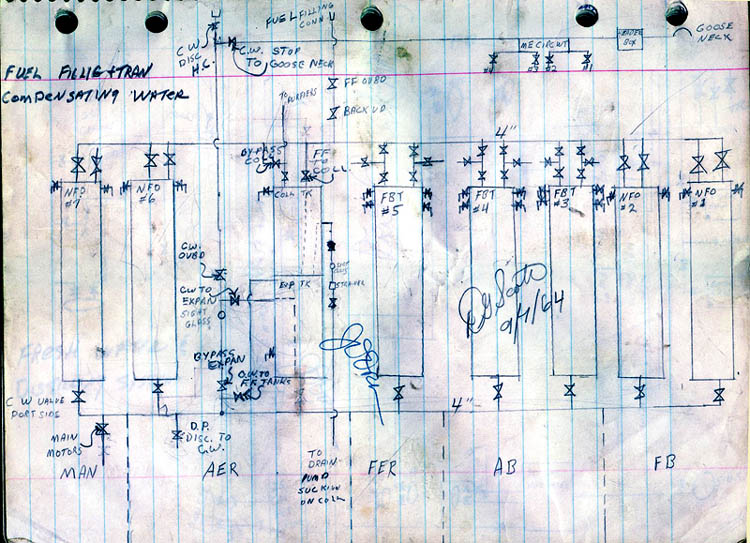 FUEL FILLING
CONN
C W
DISC
H.C.
C.W. STOP
TO GOOSE NECK
ME CIRCUIT
#4 #3 #2 #1
HEADER
BOX
GOOSE
NECK
FUEL FILLIG + TRAN
COMPENSATING WATER
TO
PURIFIERS
FF OUBD
BACK UP
4"
BYPASS
COLL
FF
TO
COLL
COLL TK
NFO
#7
NFO
#6
FBT
#5
FBT
#4
FBT
#3
NFO
#2
NFO
#1
C.W.
OVBD
C W TO
EXPAN
SIGHT
GLASS
EXP TK
STRAINER
DG Scott
9/1/64
BYPASS
EXPAN
C.W. TO
FF TANKS
C W VALVE
PORT SIDE
4"
MAIN
MOTORS
D.P.
DISC. TO
C.W.
TO
DRAIN
PUMP
SUCTION
ON COLL
MAN
AER
FER
AB
FB